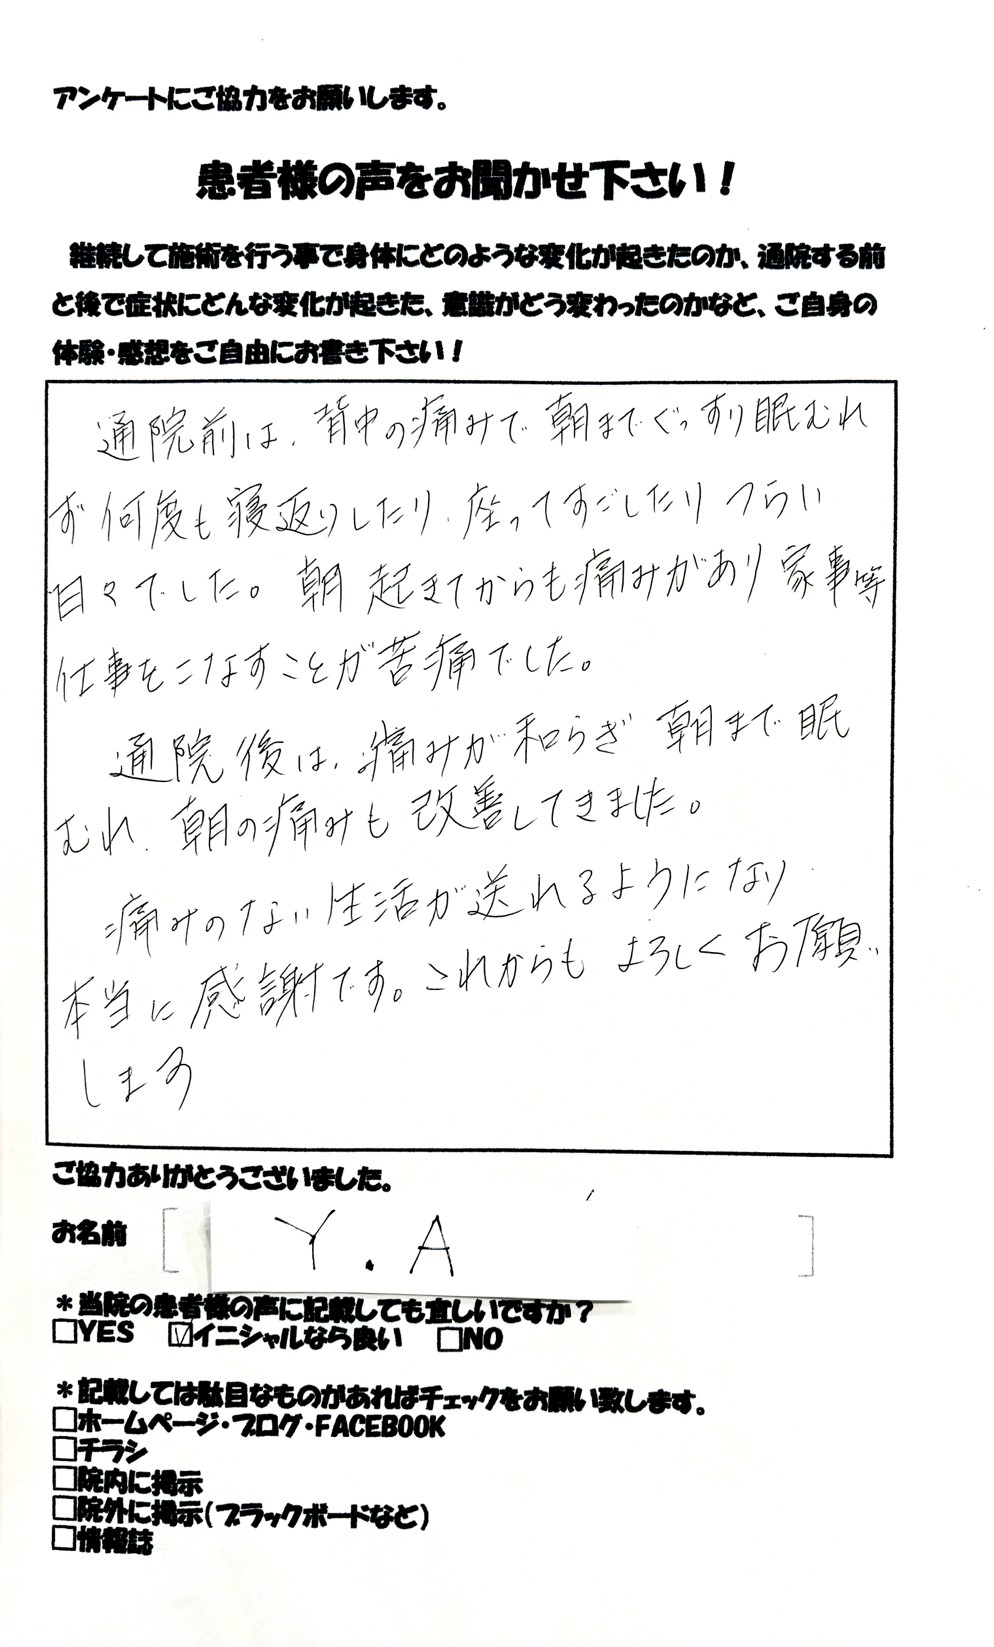 アンケートにご協力をお願いします。
患者様の声をお聞かせ下さい！
継続して施術を行う事で身体にどのような変化が起きたのか、通院する前
と後で症状にどんな変化が起きた、意識がどう変わったのかなど、ご自身の
体験・感想をご自由にお書き下さい！
通院前は、背中の痛みで朝までぐっすり眠むれ
ず何度も寝返りしたり、座ってすごしたりつらい
日々でした。朝起きてからも痛みがあり家事等
仕事をこなすことが苦痛でした。
通院後は、痛みが和らぎ朝まで眠
むれ、朝の痛みも改善してきました。
痛みのない生活が送れるようになり
本当に感謝です。これからもよろしくお願い
します
ご協力ありがとうございました。
お名前 Y.A
＊当院の患者様の声に記載しても宜しいですか？
□YES ☑イニシャルなら良い □NO
＊記載しては駄目なものがあればチェックをお願い致します。
□ホームページ・ブログ・FACEBOOK
□チラシ
□院内に掲示
□院外に掲示(ブラックボードなど)
□情報誌